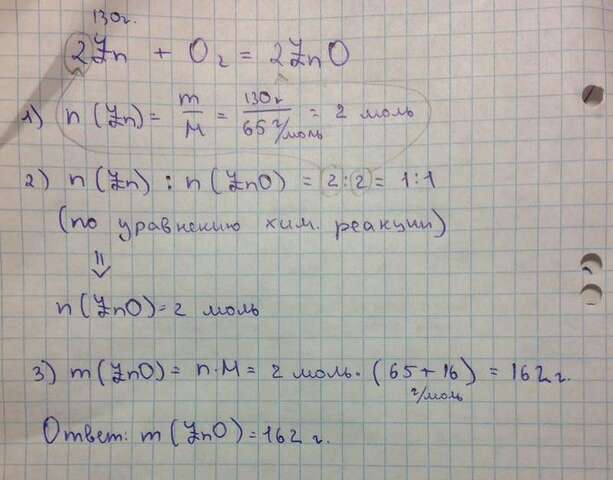 130г.
2Zn + O₂ = 2ZnO
1) n (Zn) = m/M = 130г/65 г/моль = 2 моль
2) n (ZnO) : n (ZnO) = 2:2 = 1:1
(по уравнению хим. реакции)
⇓
n (ZnO) = 2 моль
3) m (ZnO) = n·M = 2 моль · (65+16) г/моль = 162 г.
Ответ: m (ZnO) = 162 г.